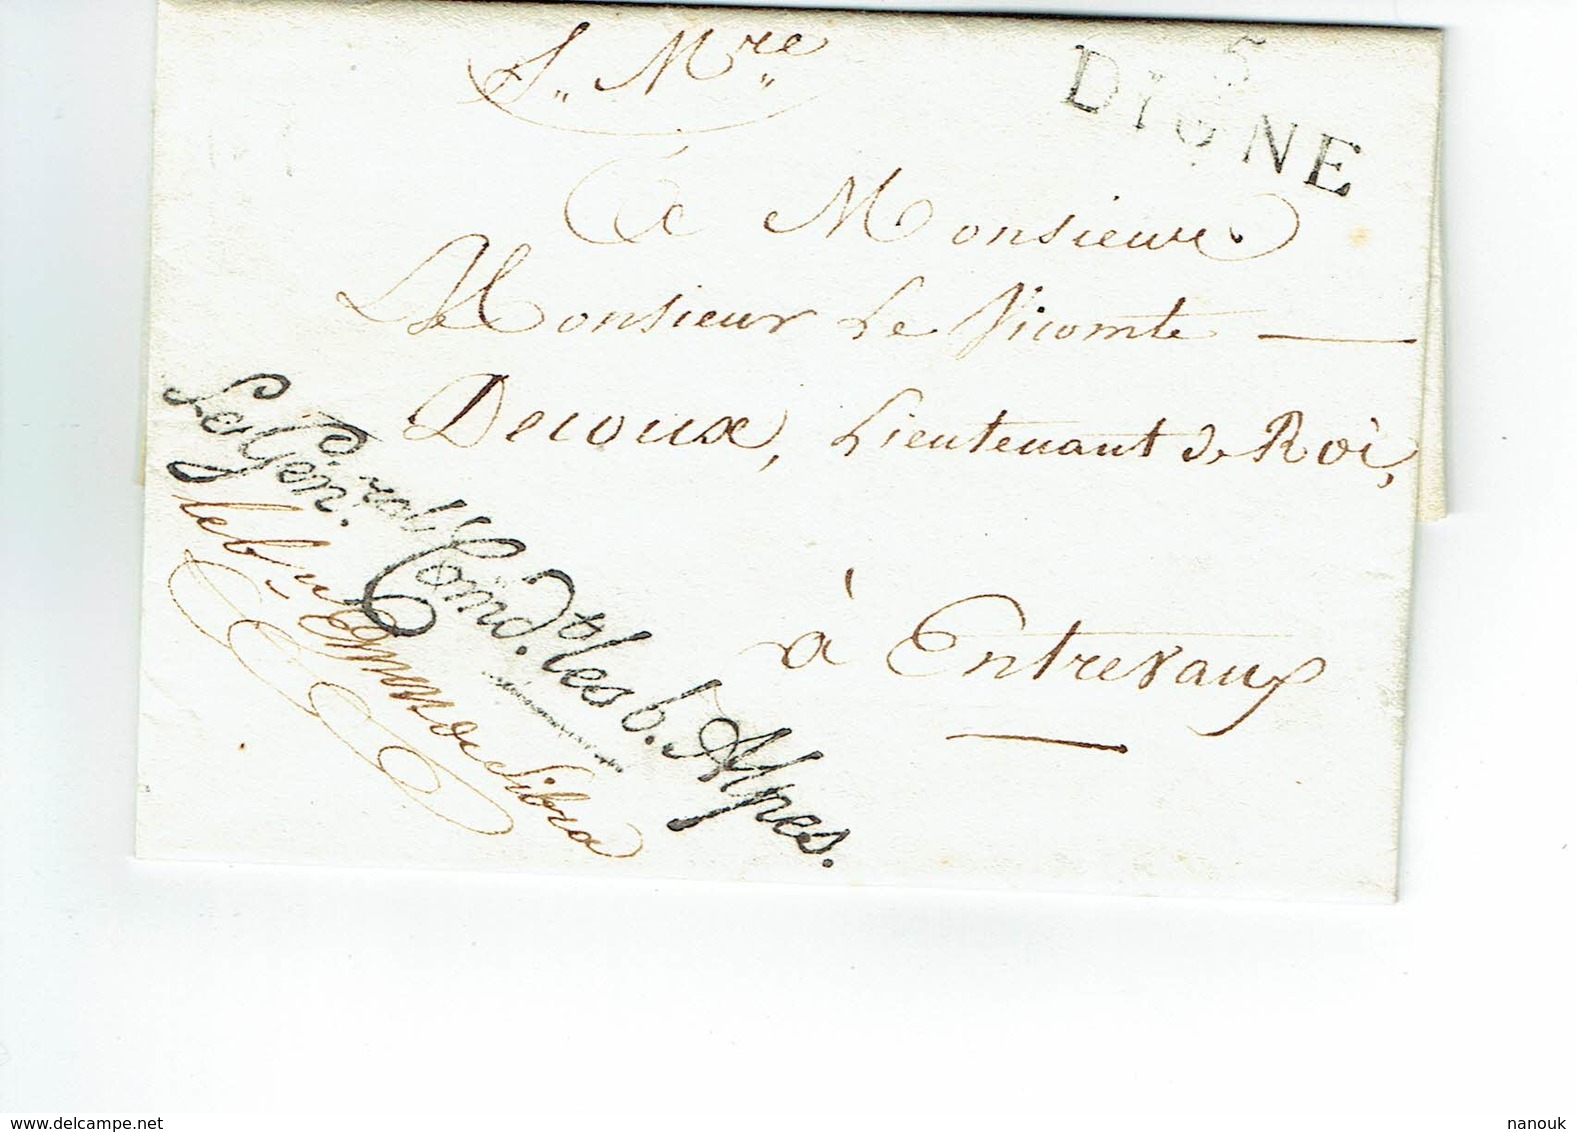 S. Mre
5
DIGNE
A Monsieur
Monsieur Le Vicomte
Decoux, Lieutenant de Roi,
à Entrevaux
Le Génral Comdt les b. Alpes.
le bn
www.delcampe.net
nanouk